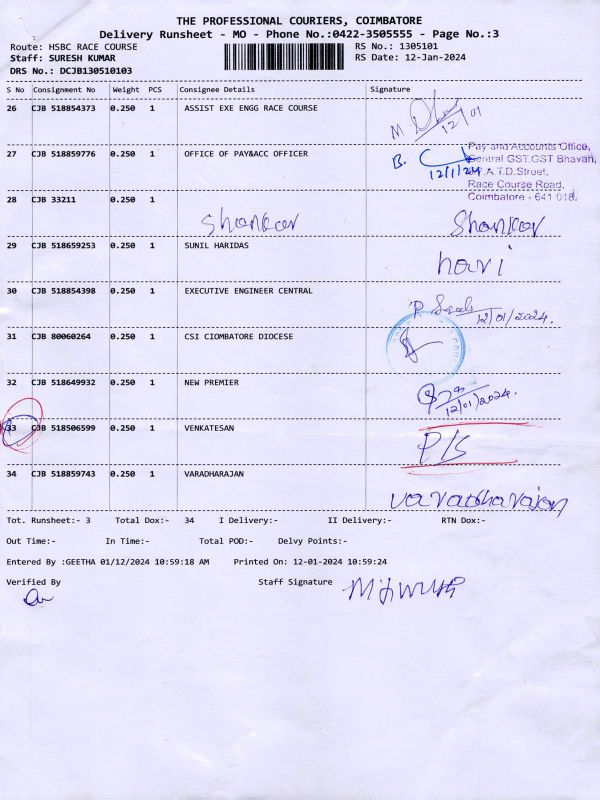 THE PROFESSIONAL COURIERS, COIMBATORE
Delivery Runsheet - MO - Phone No.:0422-3505555 - Page No.:3
Route: HSBC RACE COURSE RS No.: 1305101
Staff: SURESH KUMAR RS Date: 12-Jan-2024
DRS No.: DCJB130510103
S No Consignment No Weight PCS Consignee Details Signature
26 CJB 518854373 0.250 1 ASSIST EXE ENGG RACE COURSE
12/01
27 CJB 518859776 0.250 1 OFFICE OF PAY&ACC OFFICER B.
12/1/24
Pay and Accounts Office,
Central GST,GST Bhavan,
A.T.D.Street,
Race Course Road,
Coimbatore - 641 018.
28 CJB 33211 0.250 1 Shankar Shankar
29 CJB 518659253 0.250 1 SUNIL HARIDAS hari
30 CJB 518854398 0.250 1 EXECUTIVE ENGINEER CENTRAL
12/01/2024.
31 CJB 80060264 0.250 1 CSI CIOMBATORE DIOCESE
32 CJB 518649932 0.250 1 NEW PREMIER
12/01/2024.
33 CJB 518506599 0.250 1 VENKATESAN P/S
34 CJB 518859743 0.250 1 VARADHARAJAN varadharajan
Tot. Runsheet:- 3 Total Dox:- 34 I Delivery:- II Delivery:- RTN Dox:-
Out Time:- In Time:- Total POD:- Delvy Points:-
Entered By :GEETHA 01/12/2024 10:59:18 AM Printed On: 12-01-2024 10:59:24
Verified By Staff Signature